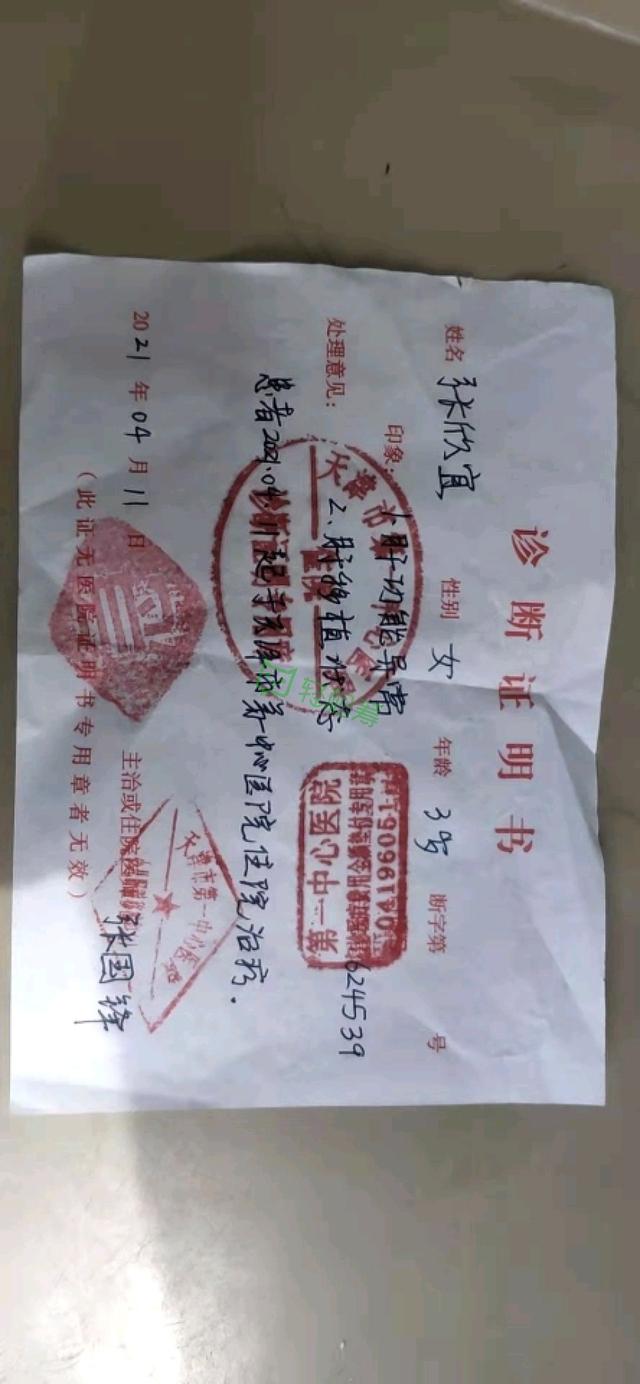 诊断证明书
姓名 张欣宜 性别 女 年龄 3岁 断字第 号
印象: 1.肝功能异常
2.肝移植状态
624539
处理意见:
患者2021.04.11起于天津市第一中心医院住院治疗.
第一中心医院
天津市第一中心医院
主治或住院医师 张国锋
2021年04月11日
(此证无医院证明书专用章者无效)